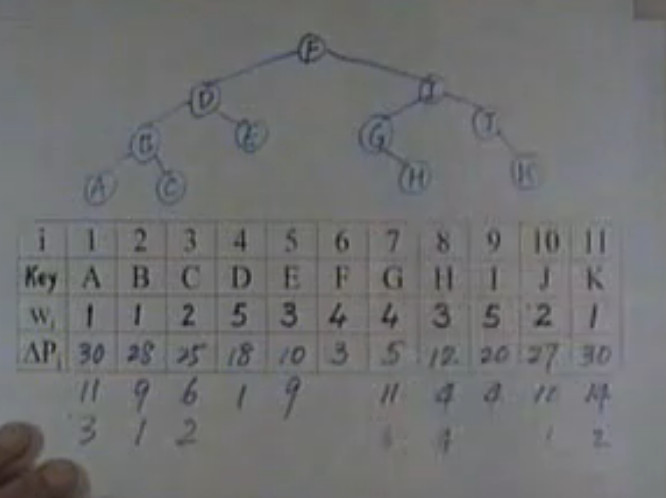 F
D I
B E G J
A C H K
i 1 2 3 4 5 6 7 8 9 10 11
Key A B C D E F G H I J K
Wi 1 1 2 5 3 4 4 3 5 2 1
ΔPi 30 28 25 18 10 3 5 12 20 27 30
11 9 6 1 9 11 4 4 11
3 1 2 2